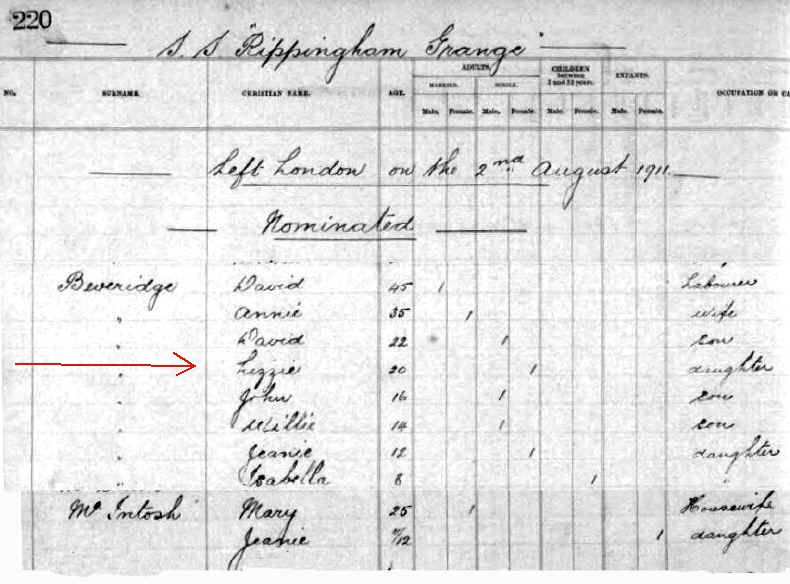 220
S. S. "Rippingham Grange"
NO. SURNAME. CHRISTIAN NAME. AGE. ADULTS. CHILDREN between 1 and 12 years. INFANTS. OCCUPATION OR CA
MARRIED. SINGLE.
Male. Female. Male. Female. Male. Female. Male. Female.
Left London on the 2nd August 1911.
Nominated
Beveridge David 45 1 Labourer
" Annie 35 1 wife
" David 22 1 son
" Lizzie 20 1 daughter
" John 16 1 son
" Willie 14 1 son
" Jeanie 12 1 daughter
" Isabella 8 1 "
Mc Intosh Mary 25 1 Housewife
Jeanie /12 1 daughter